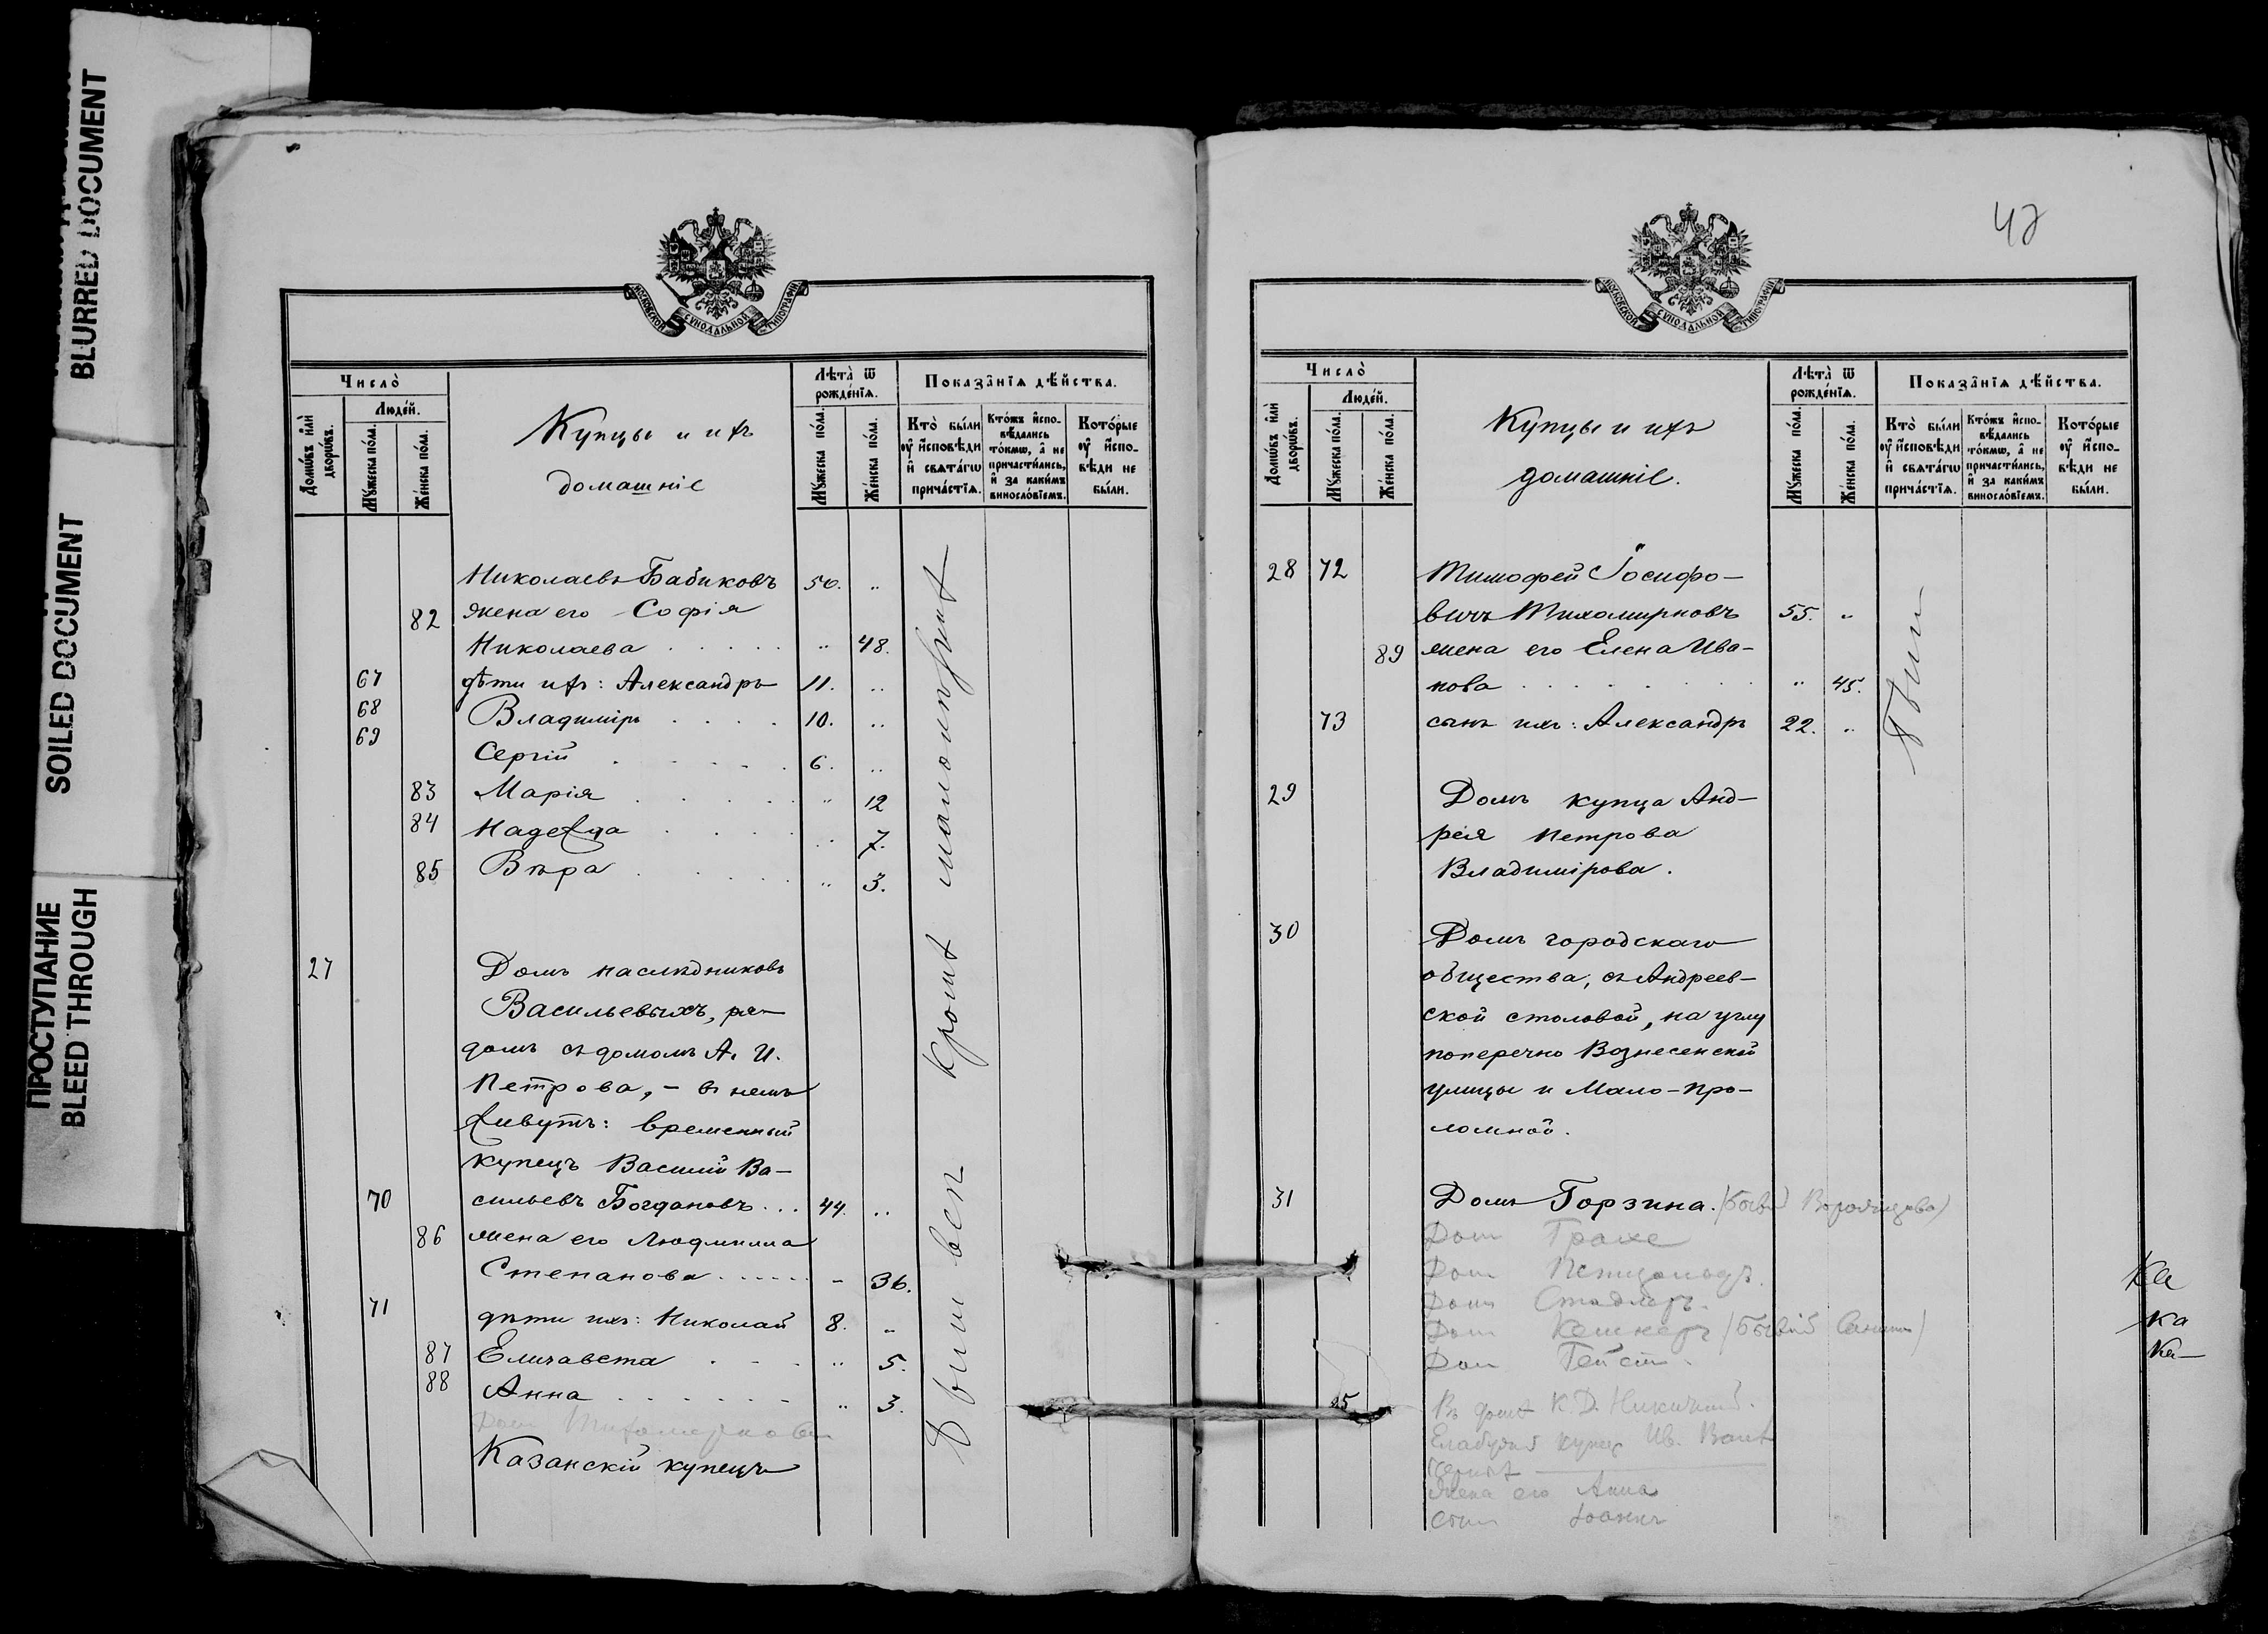 BLURRED DOCUMENT
SOILED DOCUMENT
ПРОСТУПАНИЕ
BLEED THROUGH
МОСКОВСКОЙ СѴНОДАЛЬНОЙ ТИПОГРАФІИ
Число̀
Домѡ́въ и҆лѝ дворѡ́въ.
Люде́й.
Мꙋ́жеска по́ла.
Же́нска по́ла.
Купцы и ихъ
домашніе
Лѣта̀ ѿ рожде́нїѧ.
Мꙋ́жеска по́ла.
Же́нска по́ла.
Показа̑нїѧ дѣ́йства.
Кто̀ бы́ли
ᲂу҆ и҆сповѣ́ди
и҆ свѧта́гѡ
прича́стїѧ.
Кто́жъ и҆спо-
вѣ́дались
то́кмѡ, а҆ не
причасти́лись,
и҆ за каки́мъ
виносло́вїемъ.
Кото́рые
ᲂу҆ и҆спо-
вѣ́ди не
бы́ли.
Николаевъ Бабиковъ 50. "
82 жена его Софія
Николаева . . . . . " 48.
67 дѣти ихъ: Александръ 11. "
68 Владиміръ . . . . 10. "
69 Сергій . . . . . 6. "
83 Марія . . . . . " 12
84 Надежда . . . . " 7.
85 Вѣра . . . . . " 3.
27 Домъ наслѣдниковъ
Васильевыхъ, ря-
домъ съ домомъ А. И.
Петрова, - въ немъ
живутъ: временный
купецъ Василій Ва-
70 сильевъ Богдановъ... 44. "
86 жена его Людмила
Степанова ...... - 36.
71 дѣти ихъ: Николай 8. "
87 Елизавета . . . " 5.
88 Анна . . . . . . " 3.
Домъ Тихомирнова
Казанскій купецъ
были всѣ кромѣ малолѣтн
47
МОСКОВСКОЙ СѴНОДАЛЬНОЙ ТИПОГРАФІИ
Число̀
Домѡ́въ и҆лѝ дворѡ́въ.
Люде́й.
Мꙋ́жеска по́ла.
Же́нска по́ла.
Купцы и ихъ
домашніе.
Лѣта̀ ѿ рожде́нїѧ.
Мꙋ́жеска по́ла.
Же́нска по́ла.
Показа̑нїѧ дѣ́йства.
Кто̀ бы́ли
ᲂу҆ и҆сповѣ́ди
и҆ свѧта́гѡ
прича́стїѧ.
Кто́жъ и҆спо-
вѣ́дались
то́кмѡ, а҆ не
причасти́лись,
и҆ за каки́мъ
виносло́вїемъ.
Кото́рые
ᲂу҆ и҆спо-
вѣ́ди не
бы́ли.
28 72 Тимофей Іосифо-
вичъ Тихомирновъ 55. "
89 жена его Елена Ива-
нова . . . . . . . " 45.
73 сынъ ихъ: Александръ 22. "
были
29 Домъ купца Анд-
рея Петрова
Владимірова.
30 Домъ городскаго
общества, съ Андреев-
ской столовой, на углу
поперечно Вознесенской
улицы и Мало-Про-
ломной.
31 Домъ Горзина.
Домъ Грахе
Домъ
Домъ Стадлеръ.
Домъ
Домъ Гейстъ.
25
Въ домѣ К. Д. Никитина.
Елабужскій купец Ив. Вас
жена его Анна
сынъ Іоаннъ
Ка
Ка
Ка